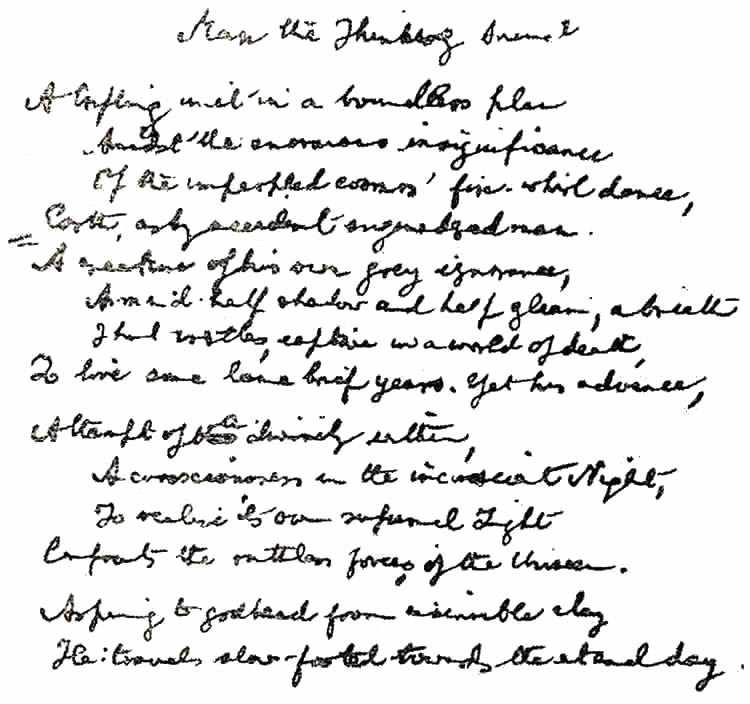 Man the Thinking Animal
A trifling unit in a boundless plan
Amidst the enormous insignificance
Of the unpeopled cosmos' fire-whirl dance,
Earth, as by accident engendered man.
A creature of his own grey ignorance,
A mind half shadow and half gleam, a breath
That wrestles, captive in a world of death,
To live some lame brief years. Yet his advance,
Attempt of a divinity within,
A consciousness in the inconscient Night,
To realise its own supernal Light
Confronts the ruthless forces of the Unseen.
Aspiring to godhead from insensible clay
He travels slow-footed towards the eternal day.